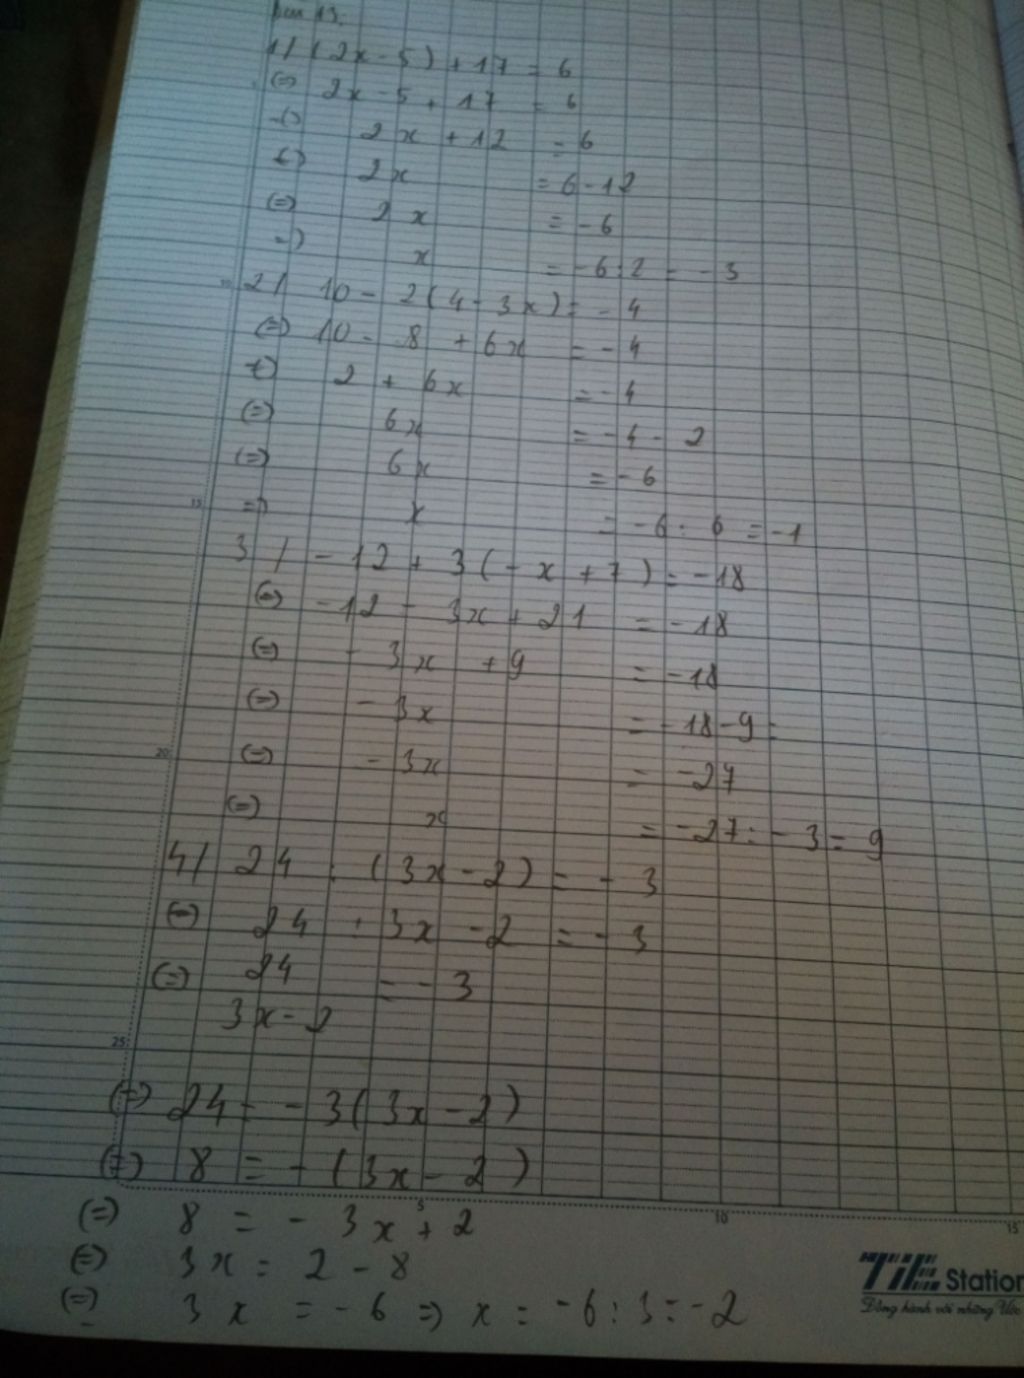 Bài 13.
1/ (2x - 5) + 17 = 6
(=) 2x - 5 + 17 = 6
(=) 2x + 12 = 6
(=) 2x = 6 - 12
(=) 2x = -6
=) x = -6 : 2 = -3
2/ 10 - 2(4 - 3x) = -4
(=) 10 - 8 + 6x = -4
(=) 2 + 6x = -4
(=) 6x = -4 - 2
(=) 6x = -6
=) x = -6 : 6 = -1
3/ -12 + 3(-x + 7) = -18
(=) -12 - 3x + 21 = -18
(=) -3x + 9 = -18
(=) -3x = -18 - 9
(=) -3x = -27
(=) x = -27 : -3 = 9
4/ 24 : (3x - 2) = -3
(=) 24 : 3x - 2 = -3
(=) 24 / 3x - 2 = -3
25
(=) 24 = -3(3x - 2)
(=) 8 = -(3x - 2)
5 10 15
(=) 8 = -3x + 2
(=) 3x = 2 - 8
TiE Station
(=) 3x = -6 => x = -6 : 3 = -2
Đồng hành với những Ước